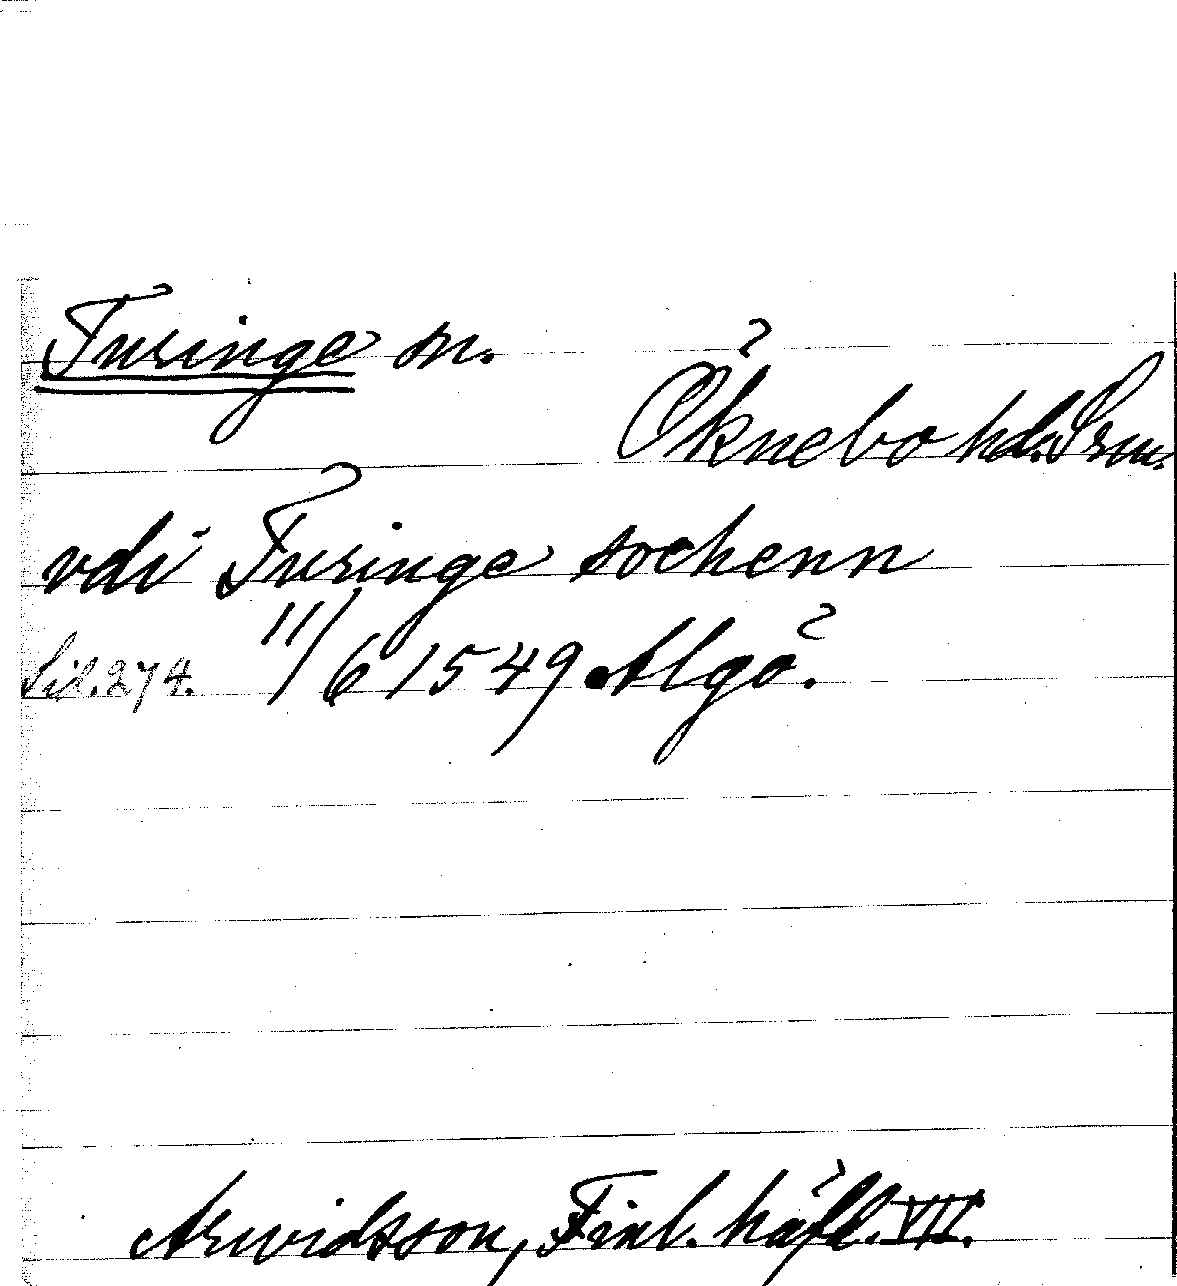 Turinge sn.
Öknebo hd. Srm.
vdi Turinge sochenn
Sid. 274. 11/6 1549. Algö.
Arwidsson, Finl. häfd. VII.